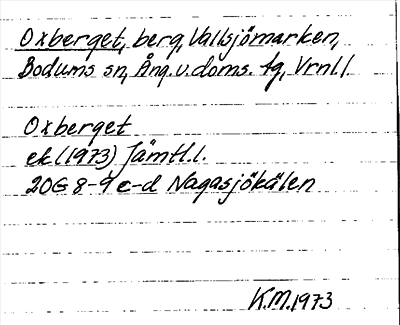 Oxberget, berg, Vallsjömarken,
Bodums sn, Ång. v. doms. tg, Vrnl l.
Oxberget
ek (1973) Jämtl. l.
20G 8-9 c-d Nagasjökälen
K.M. 1973